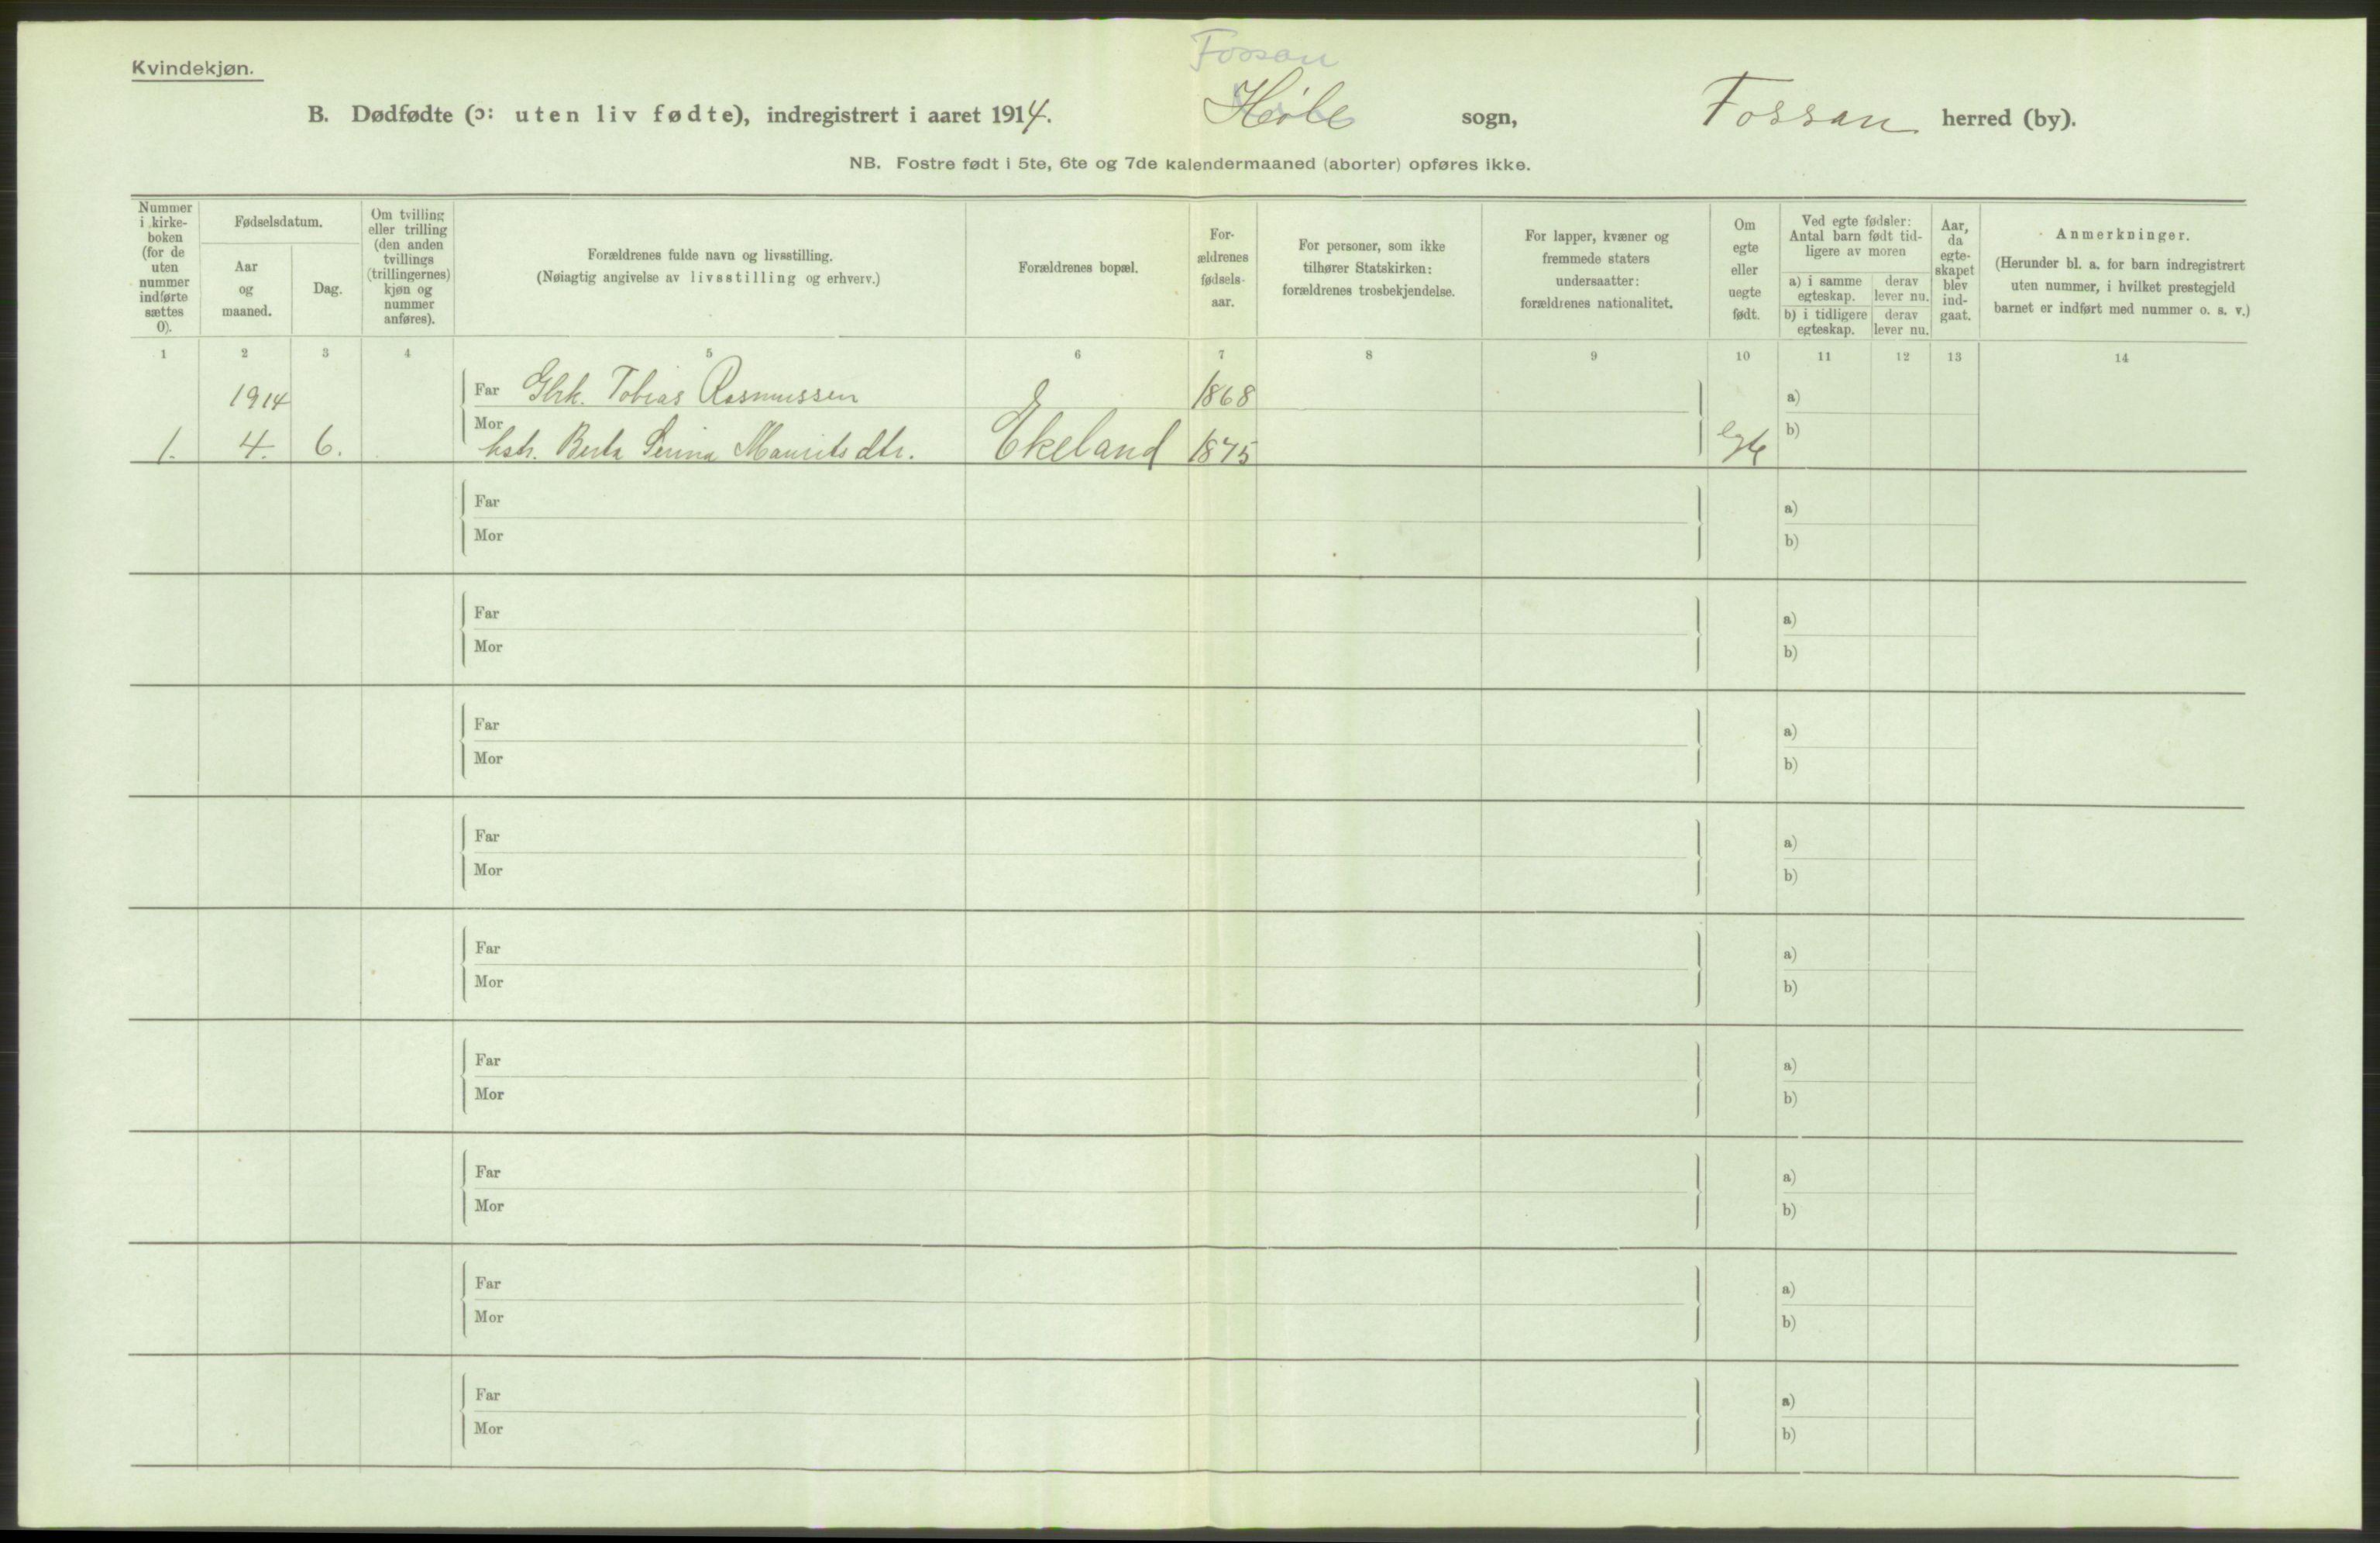 Kvindekjøn.
Fossan
B. Dødfødte (ɔ: uten liv fødte), indregistrert i aaret 1914. Høle sogn, Fossan herred (by).
NB. Fostre født i 5te, 6te og 7de kalendermaaned (aborter) opføres ikke.
Nummer
i kirke-
boken
(for de
uten
nummer
indførte
sættes
0).
Fødselsdatum.
Aar
og
maaned.
Dag.
Om tvilling
eller trilling
(den anden
tvillings
(trillingernes)
kjøn og
nummer
anføres).
Forældrenes fulde navn og livsstilling.
(Nøiagtig angivelse av livsstilling og erhverv.)
Forældrenes bopæl.
For-
ældrenes
fødsels-
aar.
For personer, som ikke
tilhører Statskirken:
forældrenes trosbekjendelse.
For lapper, kvæner og
fremmede staters
undersaatter:
forældrenes nationalitet.
Om
egte
eller
uegte
født.
Ved egte fødsler:
Antal barn født tid-
ligere av moren
a) i samme
egteskap.
derav
lever nu.
b) i tidligere
egteskap.
derav
lever nu.
Aar,
da
egte-
skapet
blev
ind-
gaat.
Anmerkninger.
(Herunder bl. a. for barn indregistrert
uten nummer, i hvilket prestegjeld
barnet er indført med nummer o. s. v.)
1 2 3 4 5 6 7 8 9 10 11 12 13 14
1914 Far Gbrk. Tobias Rasmussen 1868 a)
1. 4. 6. Mor hstr. Berta Serina Mauritsdtr. Ekeland 1875 egte b)
Far a)
Mor b)
Far a)
Mor b)
Far a)
Mor b)
Far a)
Mor b)
Far a)
Mor b)
Far a)
Mor b)
Far a)
Mor b)
Far a)
Mor b)
Far a)
Mor b)